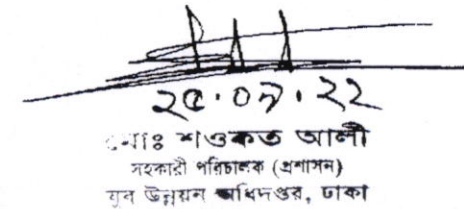 ২৫.০৯.২২
মোঃ শওকত আলী
সহকারী পরিচালক (প্রশাসন)
যুব উন্নয়ন অধিদপ্তর, ঢাকা